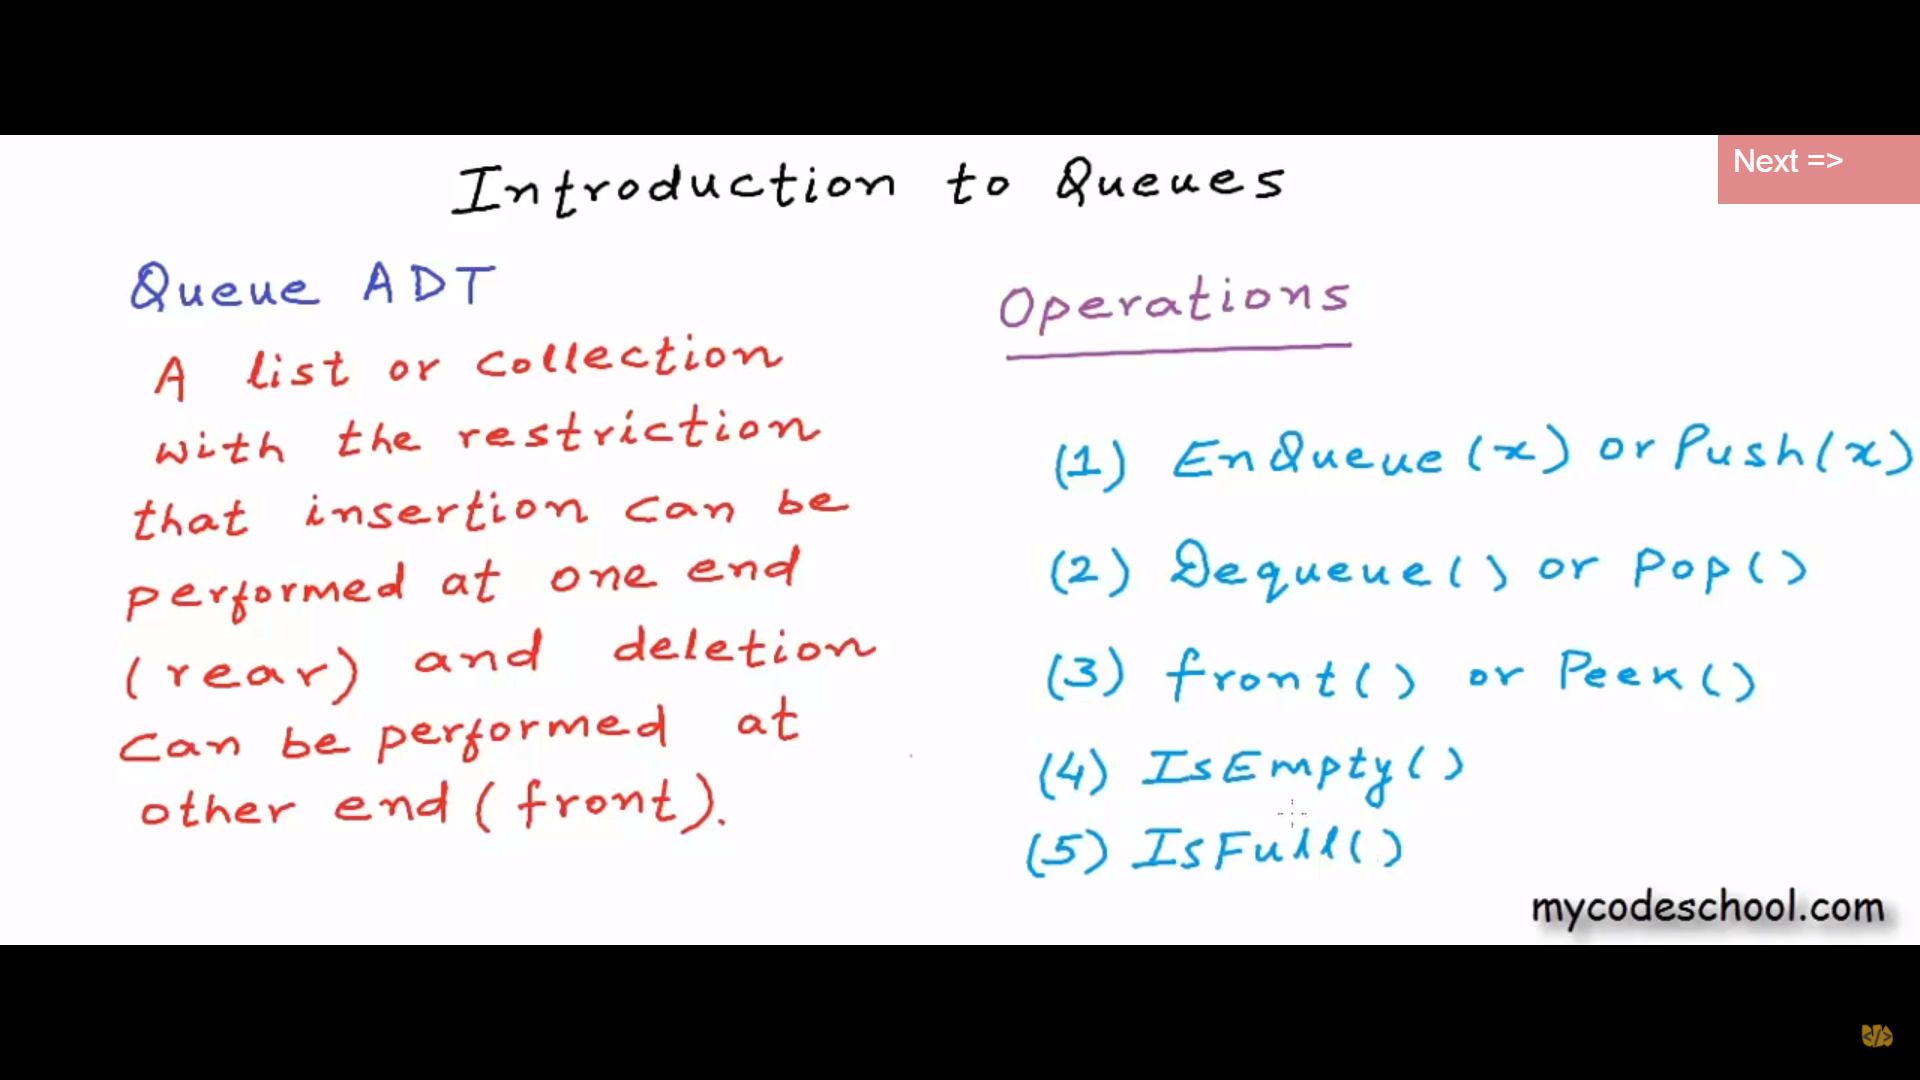 Next =>
Introduction to Queues
Queue ADT
A list or collection
with the restriction
that insertion can be
performed at one end
(rear) and deletion
can be performed at
other end (front).
Operations
(1) EnQueue(x) or Push(x)
(2) Dequeue() or Pop()
(3) front() or Peek()
(4) IsEmpty()
(5) IsFull()
mycodeschool.com